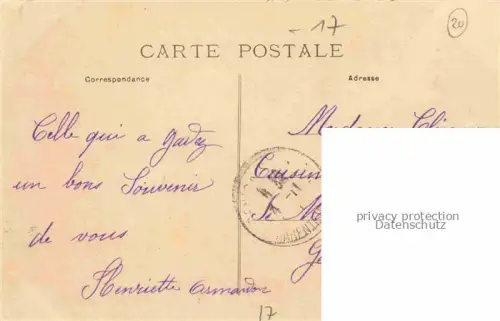 17
20
CARTE POSTALE
Correspondance
Adresse
Celle qui a gardez
un bons Souvenir
de vous
Henriette
Madame
Cuisin
privacy protection
Datenschutz
17